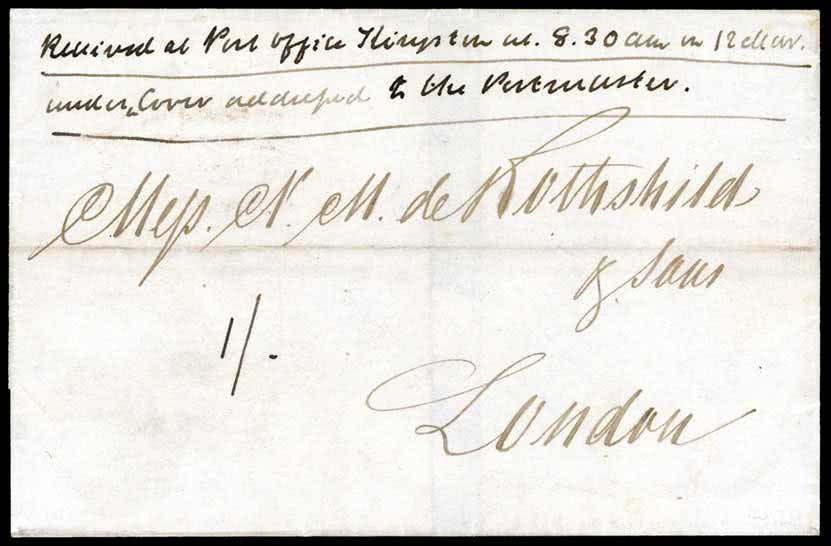 Received at Post Office Kingston at. 8.30 am on 12 Mar.
under Cover addressed to the Postmaster.
Mess. N. M. de Rothshild
& Sons
1/-
London